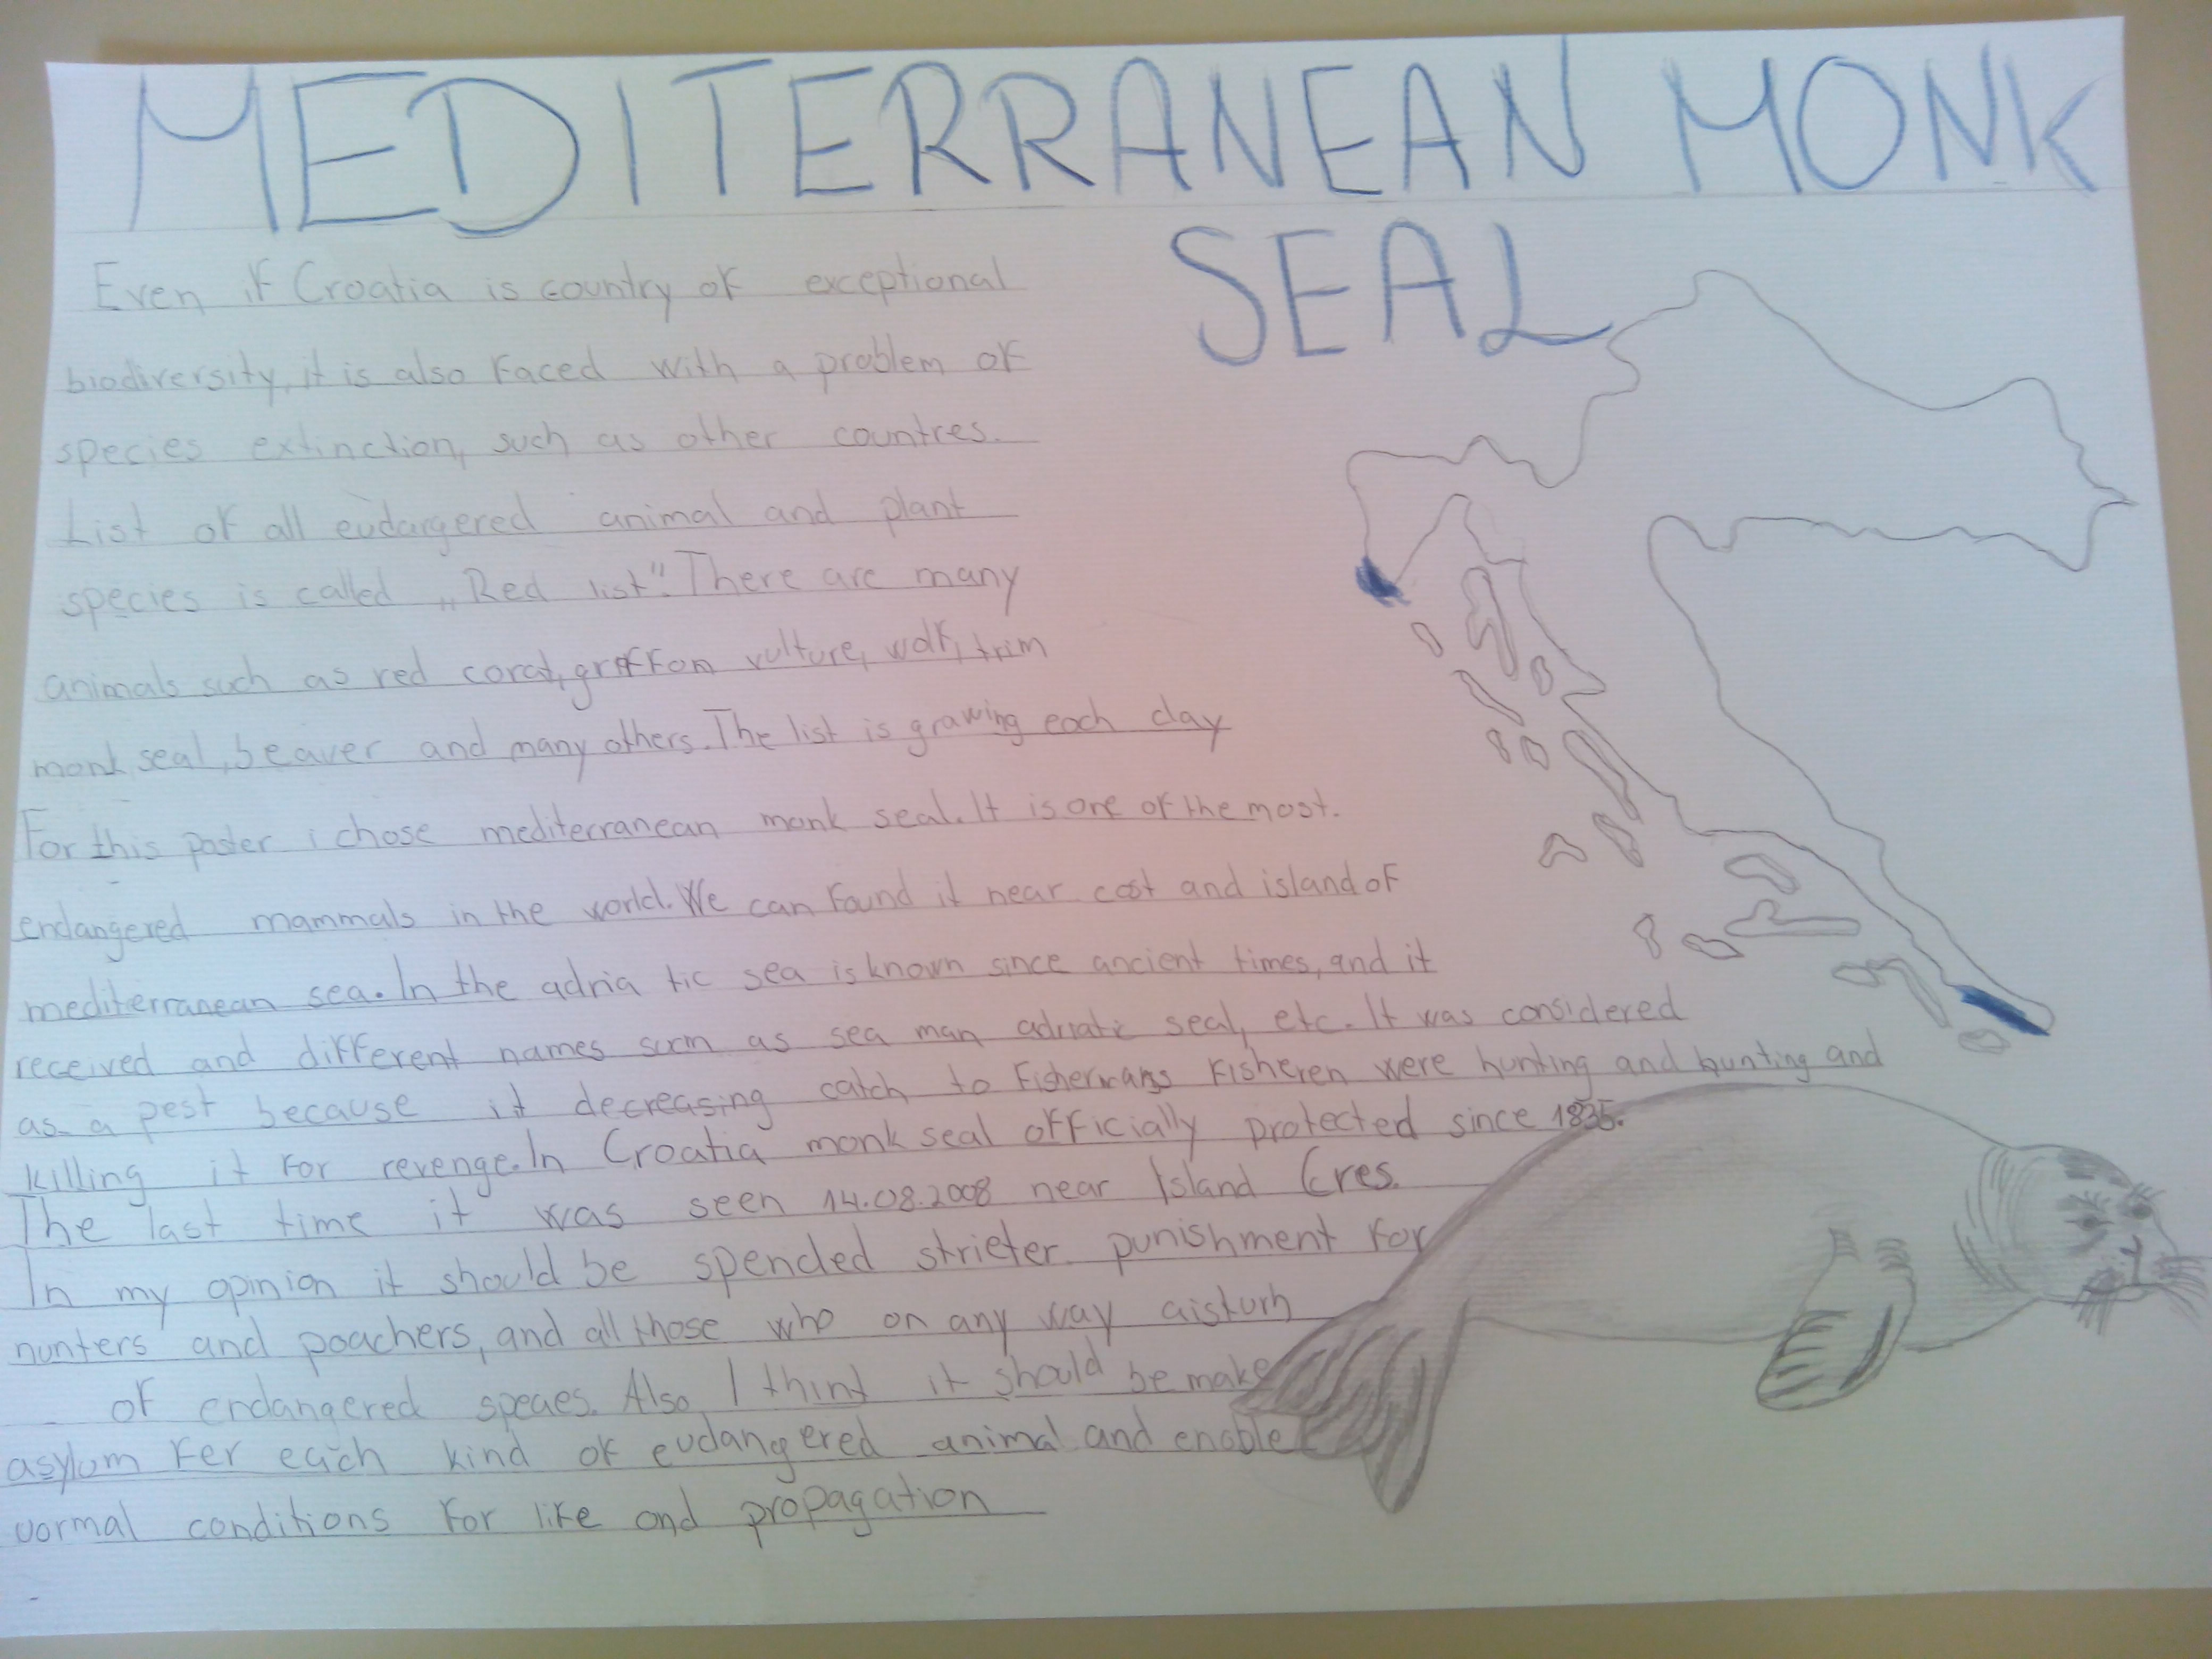 MEDITERRANEAN MONK
SEAL
Even if Croatia is country of exceptional
biodiversity, it is also faced with a problem of
species extinction, such as other countres.
List of all eudargered animal and plant
species is called „Red list". There are many
animals such as red corat, griffon vulture, wolf, trim
monk seal, beaver and many others. The list is grawing each day
For this poster i chose mediterranean monk seal. It is one of the most.
endangered mammals in the world. We can found it near cost and island of
mediterranean sea. In the adria tic sea is known since ancient times, and it
received and different names as sea man adriatic seal, etc. It was considered
as a pest because it decreasing catch to Fishermans Fisheren were hunting and hunting and
killing it for revenge. In Croatia monk seal officially protected since 1835.
The last time it was seen 14.08.2008 near Island Cres.
In my opinion it should be spended strieter punishment for
hunters and poachers, and all those who on any way disturb
of endangered speaes. Also, I thint it should be make
asylum fer each kind of eudangered animal and enable
normal conditions for life and propagation